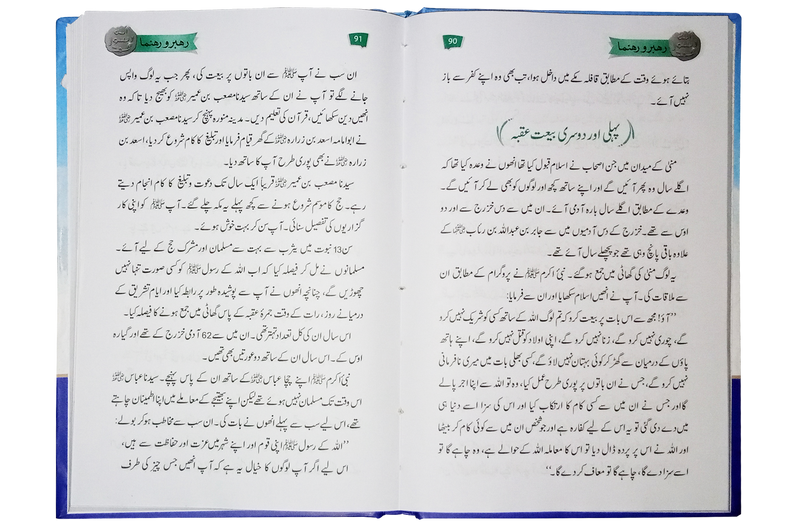 رهبر و رهنما
90
بتائے ہوئے وقت کے مطابق قافلہ مکے میں داخل ہوا، تب بھی وہ اپنے کفر سے باز
نہیں آئے۔
پہلی اور دوسری بیعت عقبہ
منیٰ کے میدان میں جن اصحاب نے اسلام قبول کیا تھا انھوں نے وعدہ کیا تھا کہ
اگلے سال وہ پھر آئیں گے اور اپنے ساتھ کچھ اور لوگوں کو بھی لے کر آئیں گے۔
وعدے کے مطابق اگلے سال بارہ آدمی آئے۔ ان میں سے دس خزرج سے اور دو
اوس سے تھے۔ خزرج کے دس آدمیوں میں سے جابر بن عبداللہ بن رئاب ؓ کے
علاوہ باقی پانچ وہی تھے جو پچھلے سال آئے تھے۔
یہ لوگ منیٰ کی گھاٹی میں جمع ہو گئے۔ نبیٔ اکرم ﷺ نے پروگرام کے مطابق ان
سے ملاقات کی۔ آپ نے انھیں اسلام سکھایا اور ان سے فرمایا:
”آؤ! مجھ سے اس بات پر بیعت کرو کہ تم لوگ اللہ کے ساتھ کسی کو شریک نہیں کرو
گے، چوری نہیں کرو گے، زنا نہیں کرو گے، اپنی اولاد کو قتل نہیں کرو گے، اپنے ہاتھ
پاؤں کے درمیان سے گھڑ کر کوئی بہتان نہیں لاؤ گے، کسی بھلی بات میں میری نافرمانی
نہیں کرو گے، جس نے ان باتوں پر پوری طرح عمل کیا، وہ تو اللہ سے اپنا اجر پا لے
گا اور جس نے ان میں سے کسی کام کا ارتکاب کیا اور اس کی سزا اسے دنیا ہی
میں دے دی گئی تو یہ اس کے لیے کفارہ ہے اور جو شخص ان میں سے کوئی کام کر بیٹھا
اور اللہ نے اس پر پردہ ڈال دیا تو اس کا معاملہ اللہ کے حوالے ہے، وہ چاہے گا تو
اسے سزا دے گا، چاہے گا تو معاف کر دے گا۔“
رهبر و رهنما
91
ان سب نے آپ ﷺ سے ان باتوں پر بیعت کی، پھر جب یہ لوگ واپس
جانے لگے تو آپ نے ان کے ساتھ سیدنا مصعب بن عمیر ؓ کو بھیج دیا تاکہ وہ
انھیں دین سکھائیں، قرآن کی تعلیم دیں۔ مدینہ منورہ پہنچ کر سیدنا مصعب بن عمیر ؓ
نے ابوامامہ اسعد بن زرارہ ؓ کے گھر قیام فرمایا اور تبلیغ کا کام شروع کر دیا، اسعد بن
زرارہ ؓ نے بھی پوری طرح آپ کا ساتھ دیا۔
سیدنا مصعب بن عمیر ؓ قریباً ایک سال تک دعوت و تبلیغ کا کام انجام دیتے
رہے۔ حج کا موسم شروع ہونے سے کچھ پہلے یہ مکہ چلے گئے۔ آپ ﷺ کو اپنی کار
گزاریوں کی تفصیل سنائی۔ آپ سن کر بہت خوش ہوئے۔
سن 13 نبوت میں یثرب سے بہت سے مسلمان اور مشرک حج کے لیے آئے۔
مسلمانوں نے مل کر فیصلہ کیا کہ اب اللہ کے رسول ﷺ کو کسی صورت تنہا نہیں
چھوڑیں گے، چنانچہ انھوں نے آپ سے پوشیدہ طور پر رابطہ کیا اور ایام تشریق کے
درمیانے روز، رات کے وقت جمرۂ عقبہ کے پاس گھاٹی میں جمع ہونے کا فیصلہ کیا۔
اس سال ان کی کل تعداد تہتر تھی۔ ان میں سے 62 آدمی خزرج کے تھے اور گیارہ
اوس کے۔ اس سال ان کے ساتھ دو عورتیں بھی تھیں۔
نبیٔ اکرم ﷺ اپنے چچا عباس ؓ کے ساتھ ان کے پاس پہنچے۔ سیدنا عباس ؓ
اس وقت تک مسلمان نہیں ہوئے تھے لیکن اپنے بھتیجے کے معاملے میں اپنا اطمینان چاہتے
تھے، اس لیے سب سے پہلے انھوں نے بات کی۔ ان سب سے مخاطب ہو کر بولے:
”اللہ کے رسول ﷺ اپنی قوم اور اپنے شہر میں عزت اور حفاظت سے ہیں،
اس لیے اگر آپ لوگوں کا خیال یہ ہے کہ آپ انھیں جس چیز کی طرف